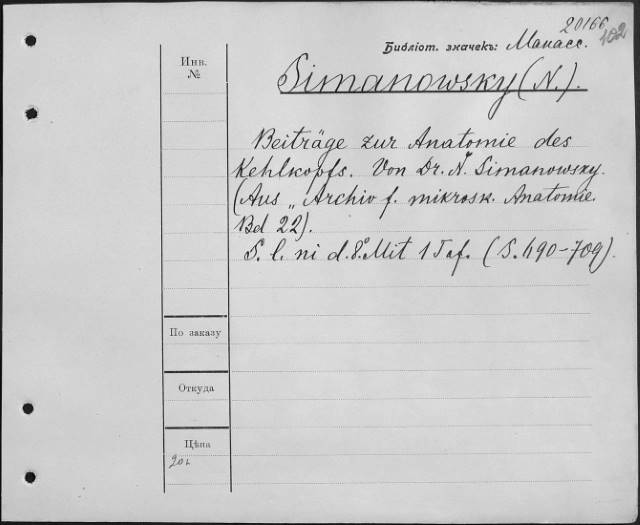 20166
102
Библіот. значекъ: Манасс.
Инв.
№
Simanowsky (N.).
Beiträge zur Anatomie des
Kehlkopfs. Von Dr. N. Simanowsky.
(Aus „Archiv f. mikrosk. Anatomie.
Bd 22).
S. l. ni d. 8º. Mit 1 Taf. (S. 690-709).
По заказу
Откуда
Цѣна